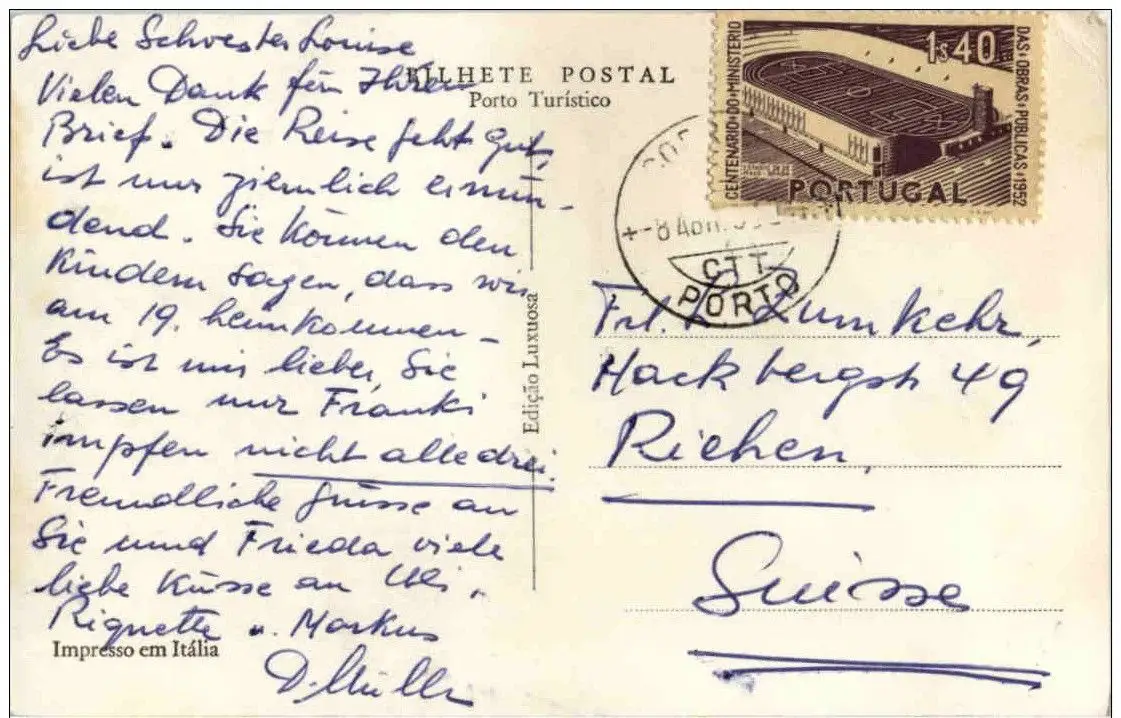 Liebe Schwester Louise
Vielen Dank für Ihren
Brief. Die Reise geht gut,
ist nur ziemlich ermü-
dend. Sie können den
Kindern sagen, dass wir
am 19. heimkommen -
Es ist mir lieber, Sie
lassen nur Franki
impfen nicht alle drei.
Freundliche Grüsse an
Sie und Frieda viele
liebe Küsse an Uli,
Riquette u. Markus
D. Müller
BILHETE POSTAL
Porto Turístico
Edição Luxuosa
Impresso em Itália
CENTENÁRIO DO MINISTÉRIO
DAS OBRAS PÚBLICAS 1952
1$40
PORTUGAL
CTT
PORTO
Frl. L. Zumkehr,
Hackbergstr 49
Riehen,
Suisse